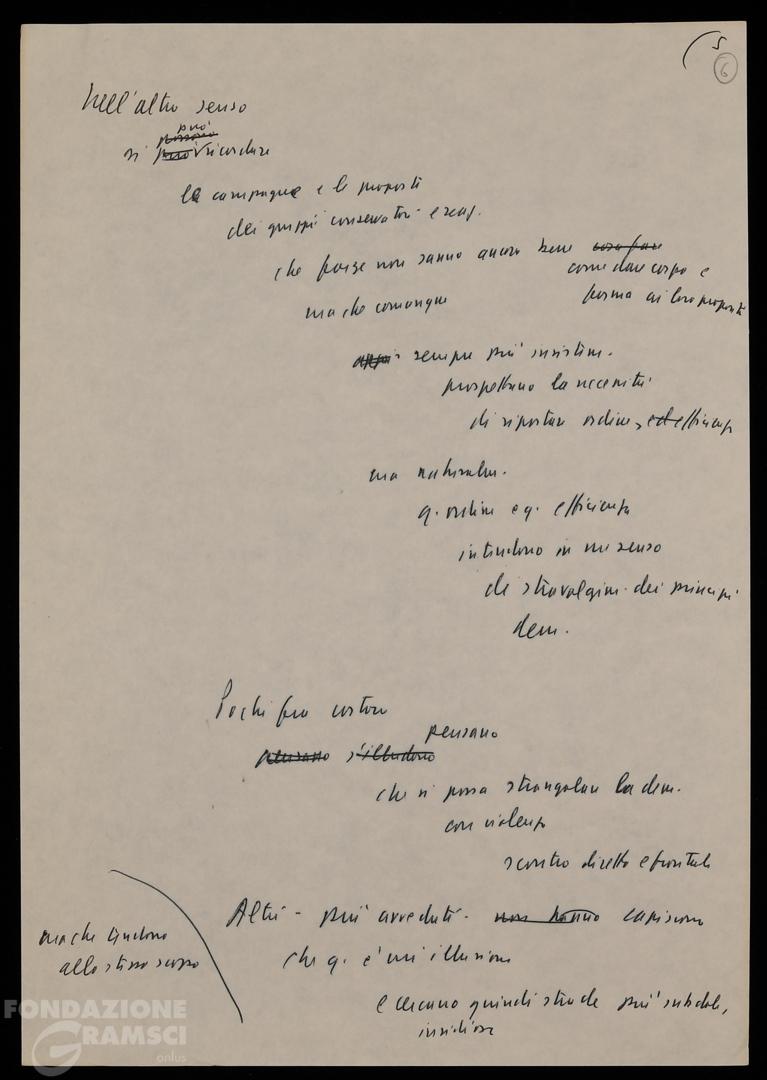 5
6
Nell'altro senso
può
si può ricordare
le campagne e le proposte
dei gruppi conservatori e reaz.
che forse non sanno ancora bene cosa fare
come dare corpo e
forma ai loro propositi
ma che comunque
sempre più insistem.
prospettano la necessità
di riportare ordine, ed efficienza
ma naturalm.
q. ordine e q. efficienza
intendono in un senso
di stravolgim. dei principi
dem.
Pochi fra costoro
pensano
pensano s'illudono
che si possa strangolare la dem.
con violenza
scontro diretto e frontale
Altri - più avveduti - non hanno capiscono
ma che tendono
allo stesso scopo
che q. è un'illusione
e cercano quindi strade più subdole,
insidiose
FONDAZIONE
GRAMSCI
onlus